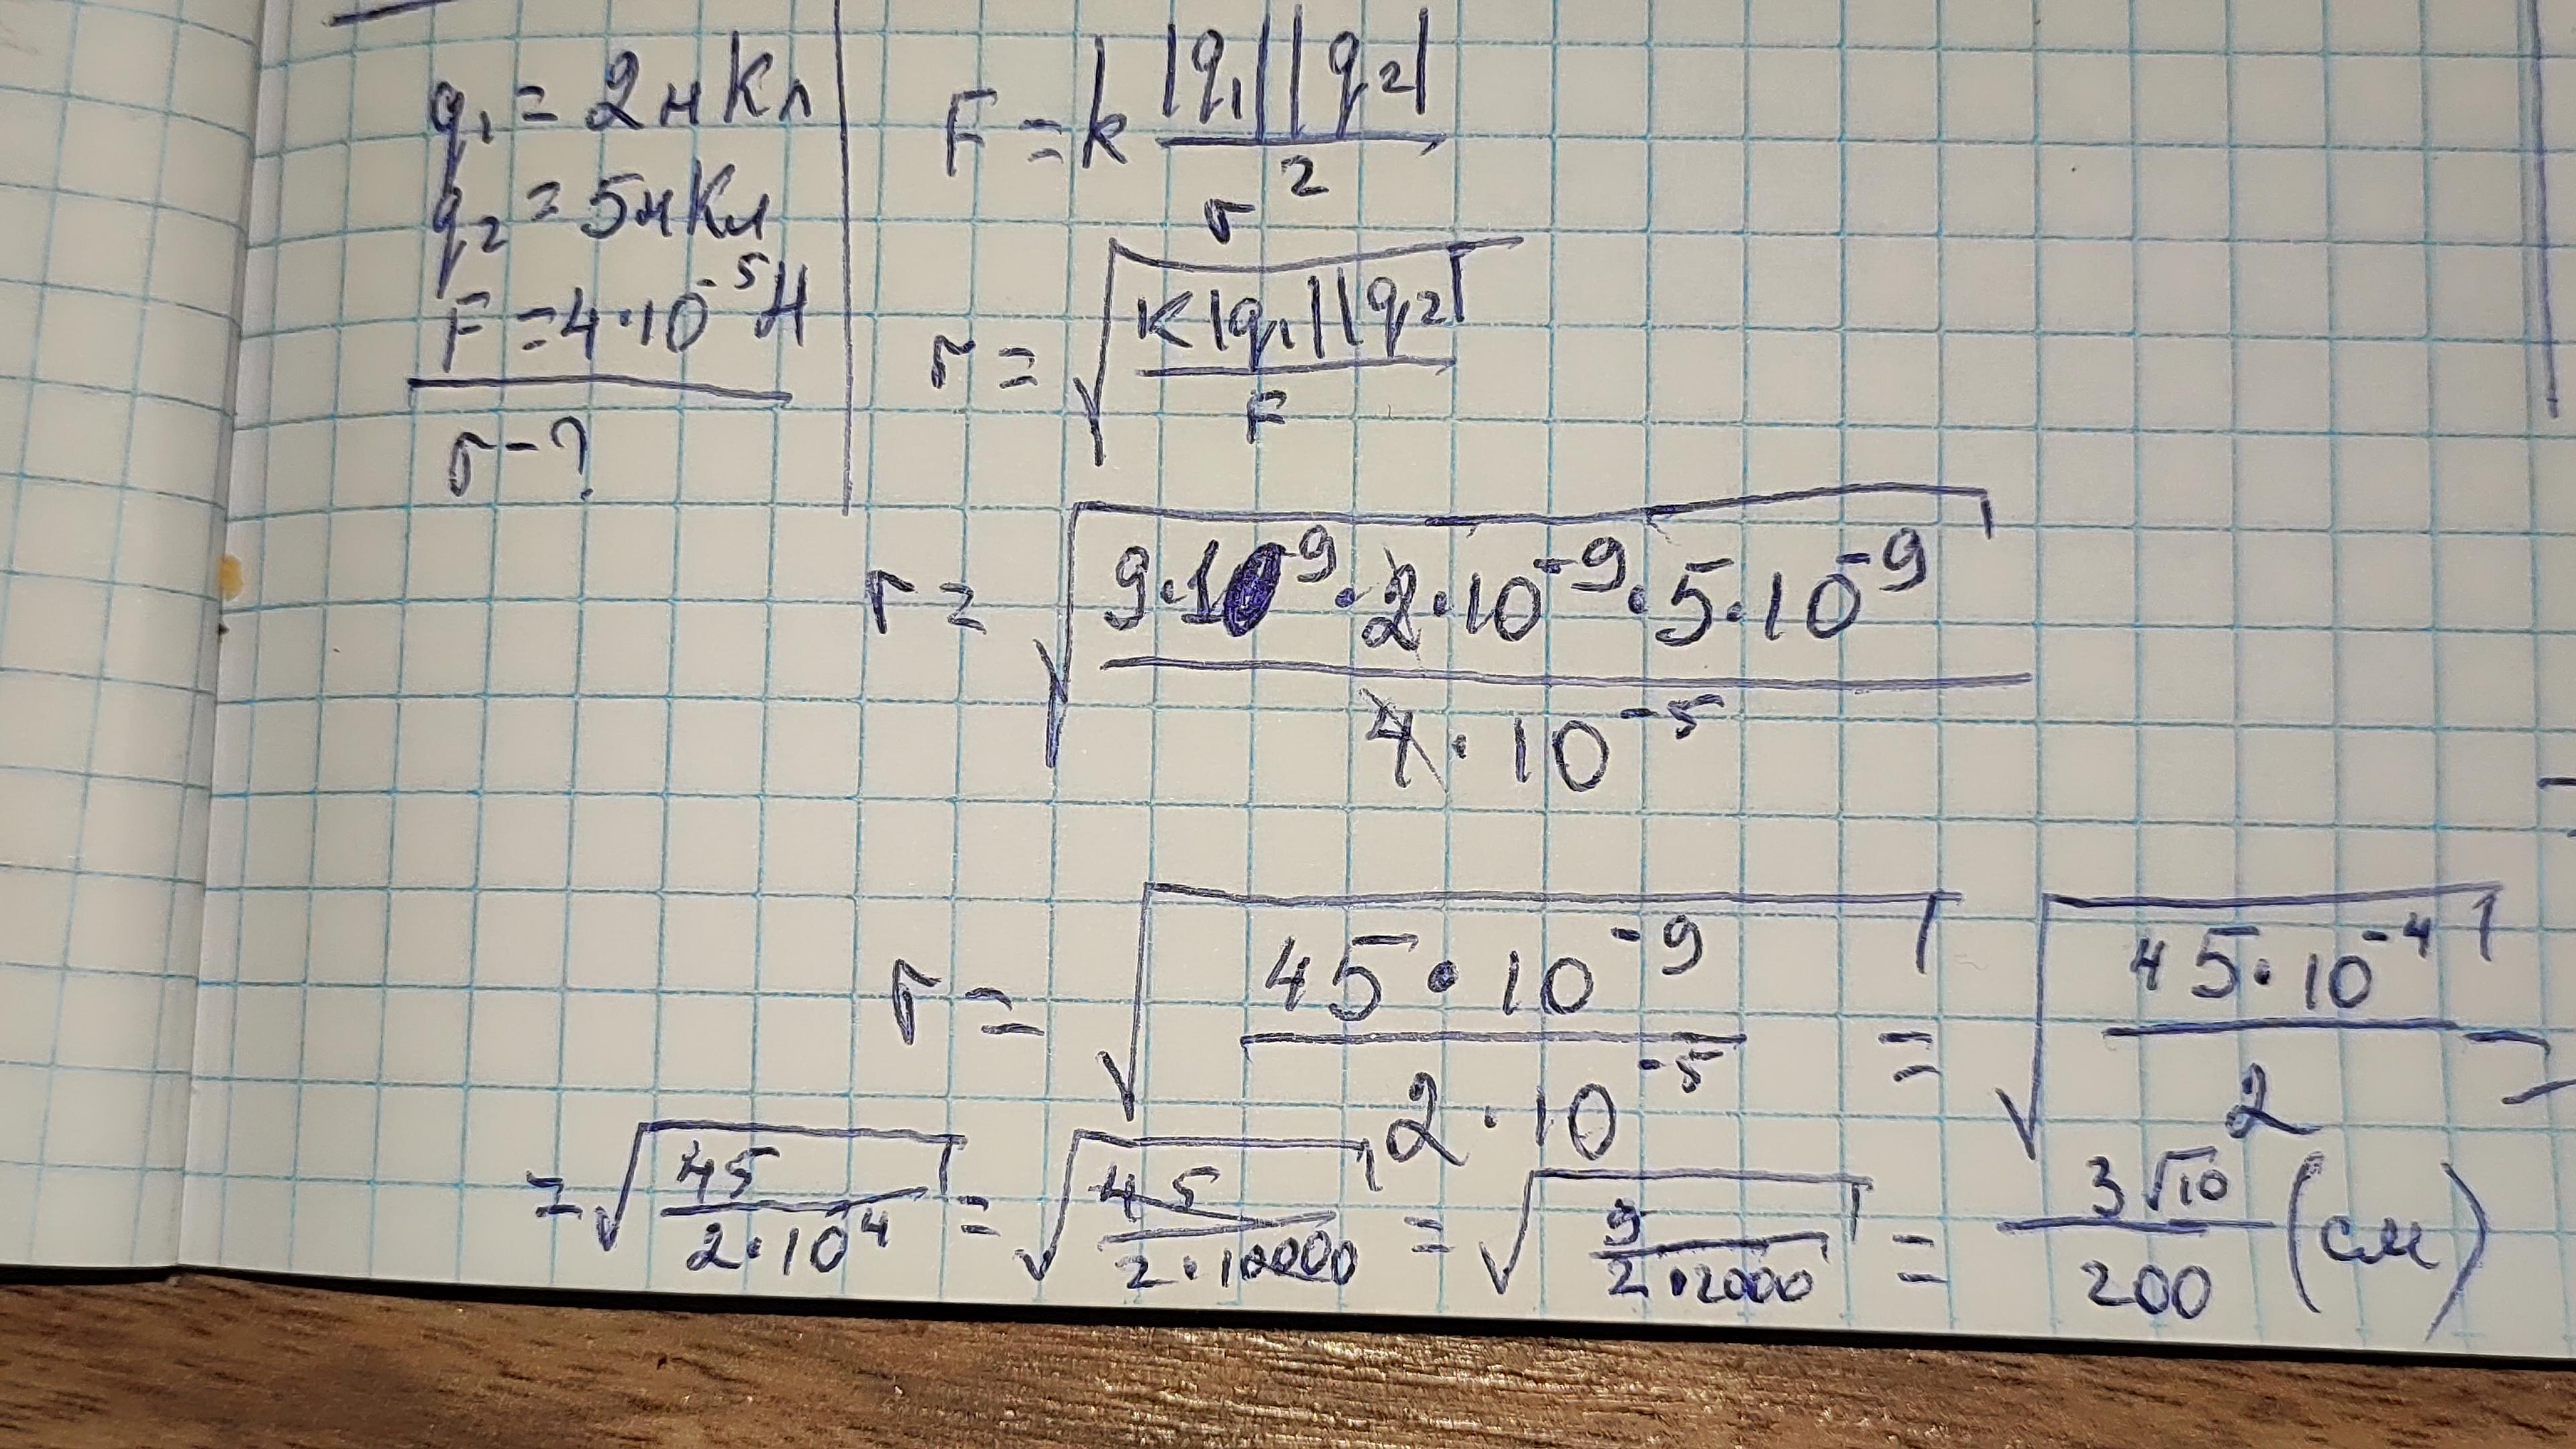 q₁ = 2нКл
q₂ = 5нКл
F = 4·10⁻⁵Н
r - ?
F = k |q₁||q₂| / r²
r = √(k|q₁||q₂| / F)
r = √(9·10⁹·2·10⁻⁹·5·10⁻⁹ / 4·10⁻⁵)
r = √(45·10⁻⁹ / 2·10⁻⁵) = √(45·10⁻⁴ / 2) =
= √(45 / 2·10⁴) = √(45 / 2·10000) = √(9 / 2·2000) = 3√10 / 200 (см)